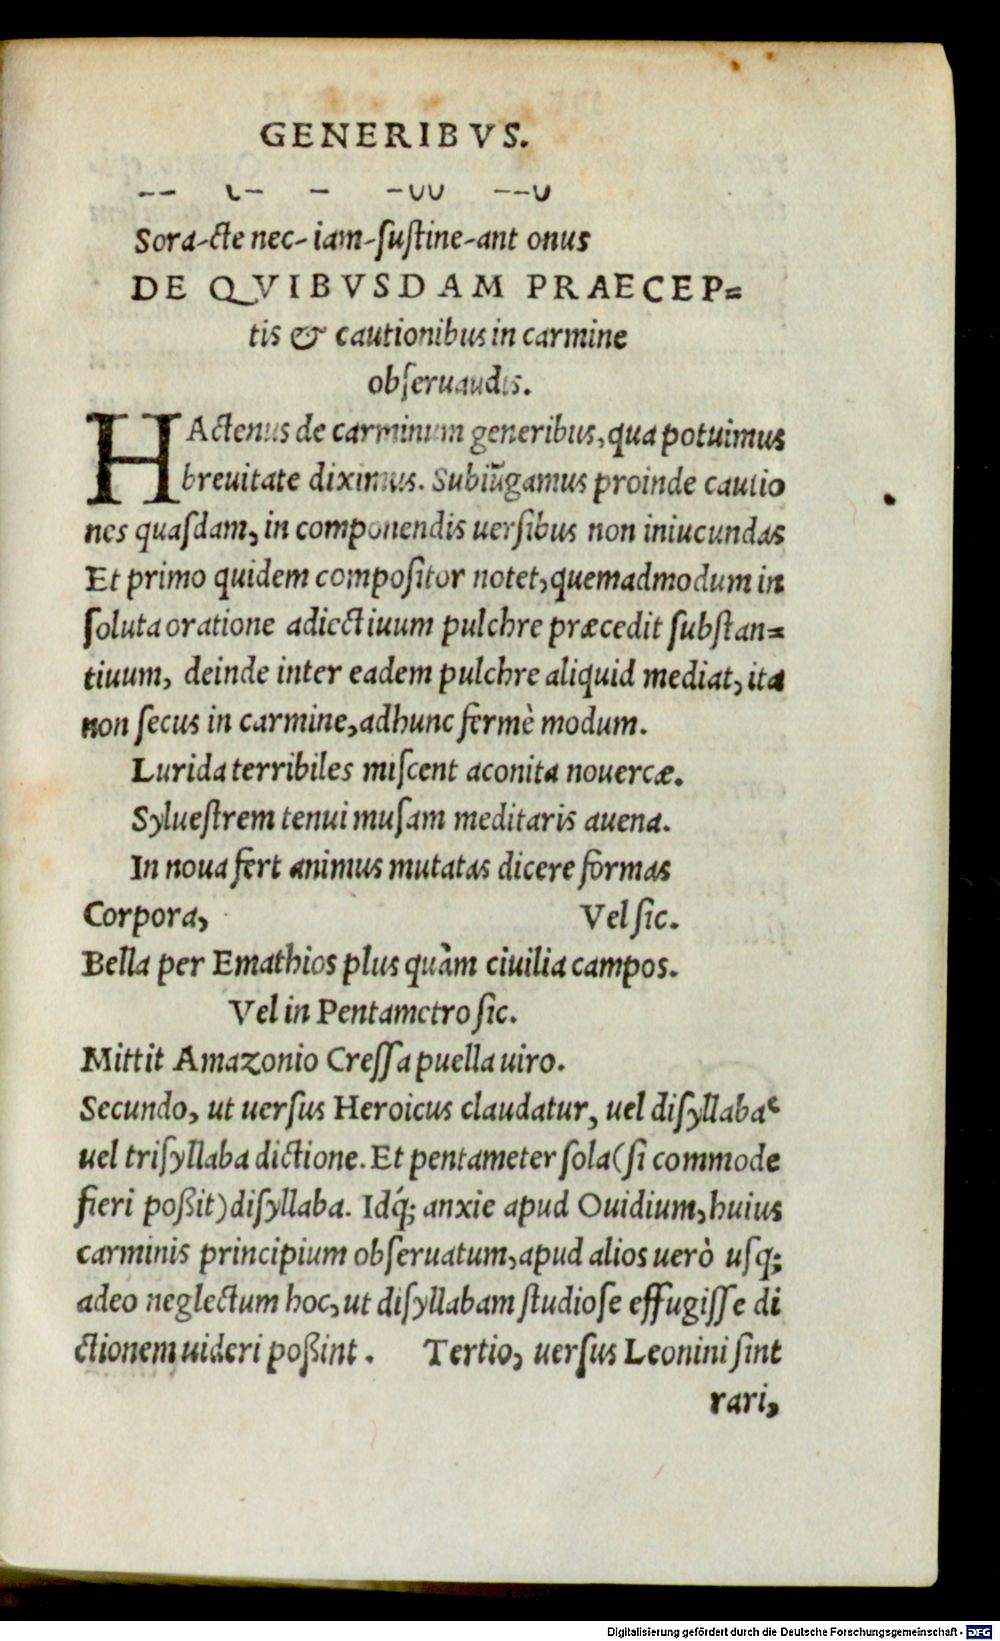 GENERIBVS.
-- ᴗ- - -ᴗᴗ --ᴗ
Sora-cte nec-iam-ſuſtine-ant onus
DE QVIBVSDAM PRAECEP=
tis & cautionibus in carmine
obſeruaudis.
HActenus de carminum generibus, qua potuimus
breuitate diximus. Subiũgamus proinde cautio
nes quaſdam, in componendis uerſibus non iniucundas
Et primo quidem compoſitor notet, quemadmodum in
ſoluta oratione adiectiuum pulchre præcedit ſubſtan=
tiuum, deinde inter eadem pulchre aliquid mediat, ita
non ſecus in carmine, adhunc fermè modum.
Lurida terribiles miſcent aconita nouercæ.
Sylueſtrem tenui muſam meditaris auena.
In noua fert animus mutatas dicere formas
Corpora, Vel ſic.
Bella per Emathios plus quàm ciuilia campos.
Vel in Pentametro ſic.
Mittit Amazonio Creſſa puella uiro.
Secundo, ut uerſus Heroicus claudatur, uel diſyllaba
uel triſyllaba dictione. Et pentameter ſola (ſi commode
fieri poßit) diſyllaba. Idq́; anxie apud Ouidium, huius
carminis principium obſeruatum, apud alios uerò uſq;
adeo neglectum hoc, ut diſyllabam ſtudioſe effugiſſe di
ctionem uideri poßint. Tertio, uerſus Leonini ſint
rari,
Digitalisierung gefördert durch die Deutsche Forschungsgemeinschaft - DFG